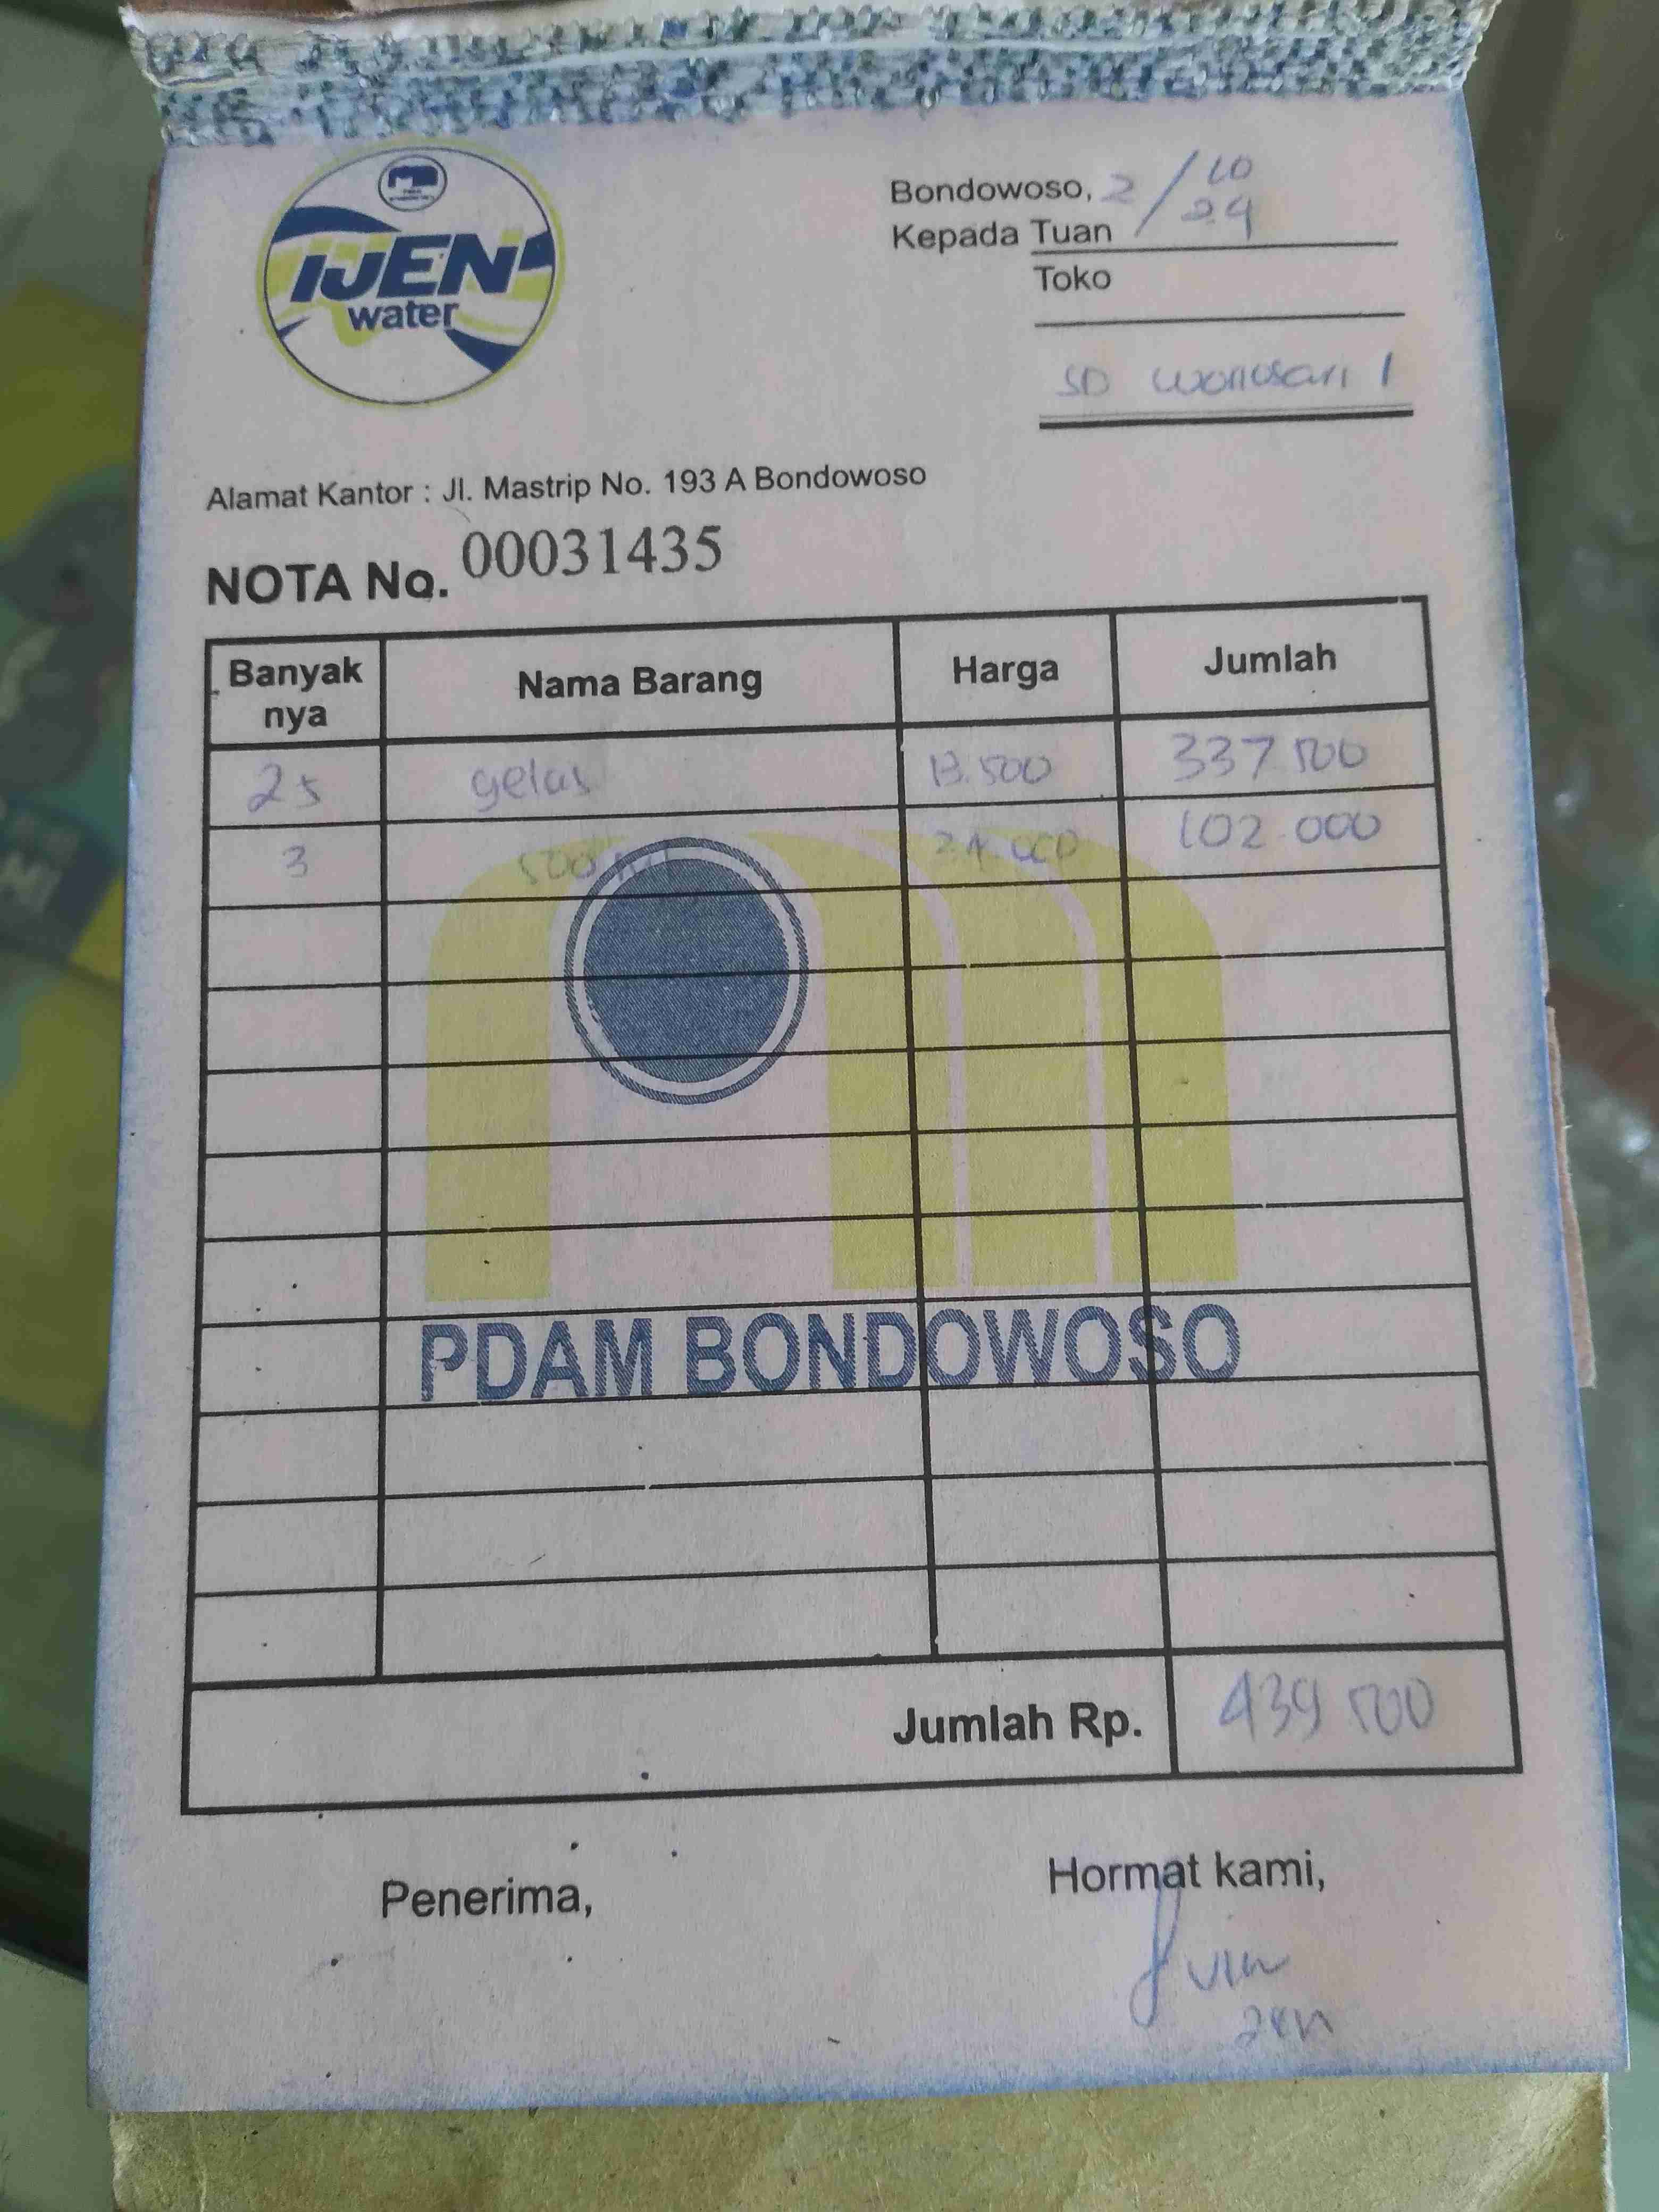 IJEN
water
Bondowoso, 2/10
24
Kepada Tuan
Toko
SD Wonosari 1
Alamat Kantor : Jl. Mastrip No. 193 A Bondowoso
NOTA No. 00031435
Banyak nya Nama Barang Harga Jumlah
25 gelas 13.500 337 500
3 500 ml 102.000
PDAM BONDOWOSO
Jumlah Rp. 439 500
Penerima, Hormat kami,